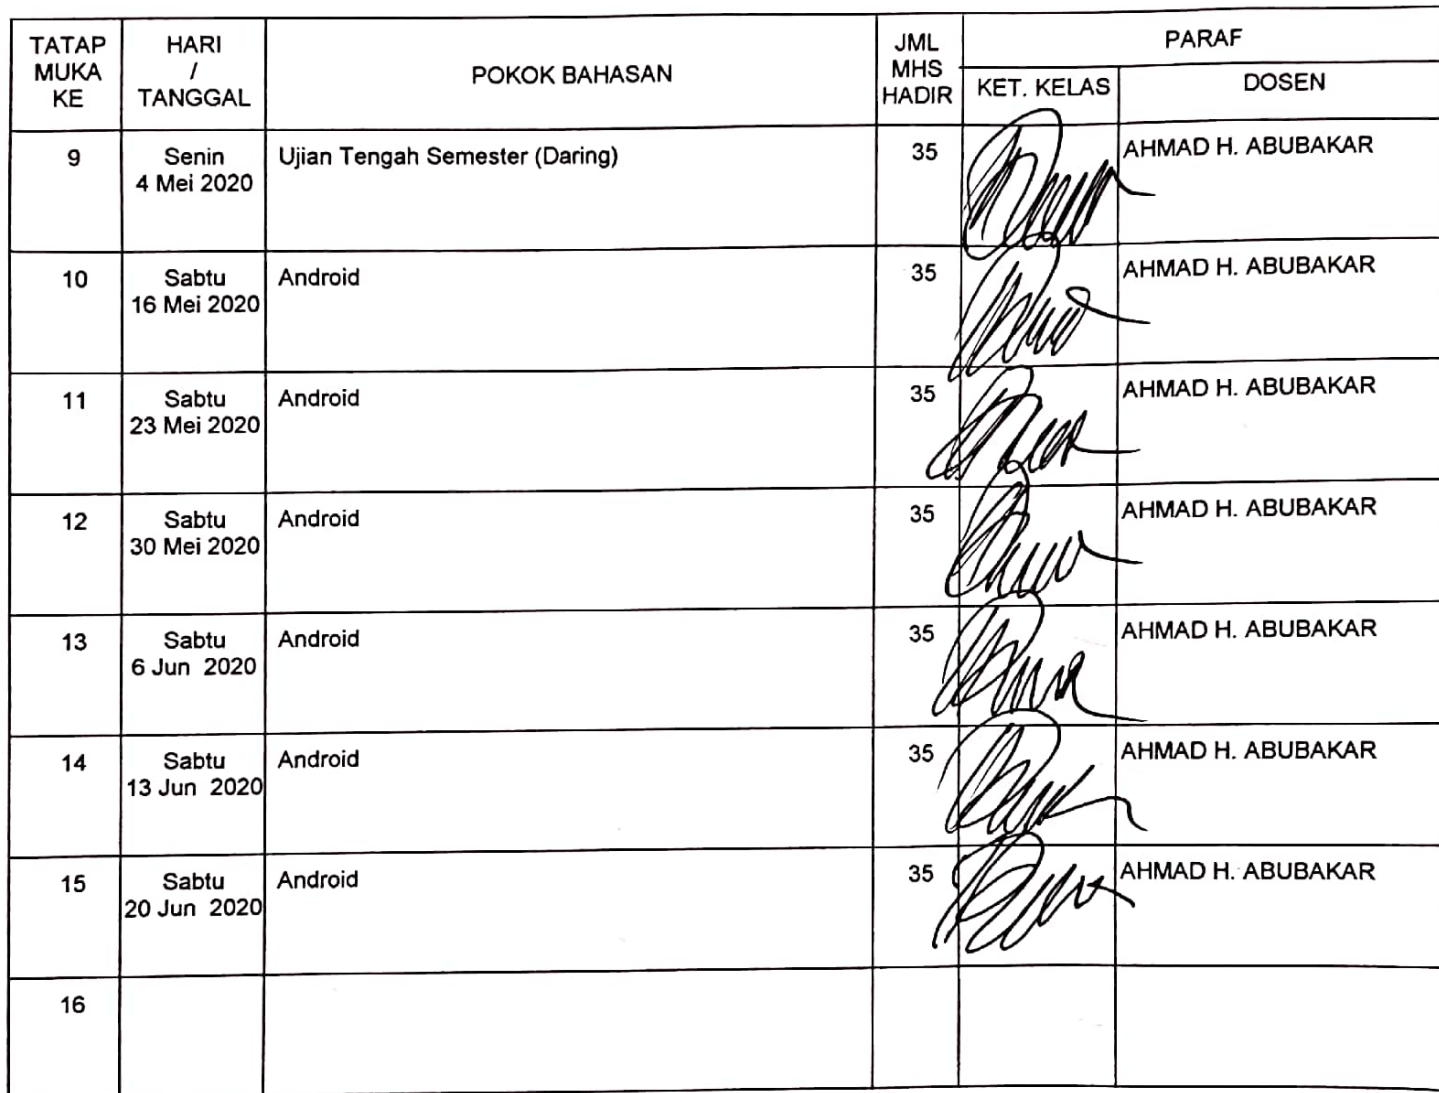 TATAP MUKA KE HARI / TANGGAL POKOK BAHASAN JML MHS HADIR PARAF
KET. KELAS DOSEN
9 Senin 4 Mei 2020 Ujian Tengah Semester (Daring) 35 AHMAD H. ABUBAKAR
10 Sabtu 16 Mei 2020 Android 35 AHMAD H. ABUBAKAR
11 Sabtu 23 Mei 2020 Android 35 AHMAD H. ABUBAKAR
12 Sabtu 30 Mei 2020 Android 35 AHMAD H. ABUBAKAR
13 Sabtu 6 Jun 2020 Android 35 AHMAD H. ABUBAKAR
14 Sabtu 13 Jun 2020 Android 35 AHMAD H. ABUBAKAR
15 Sabtu 20 Jun 2020 Android 35 AHMAD H. ABUBAKAR
16